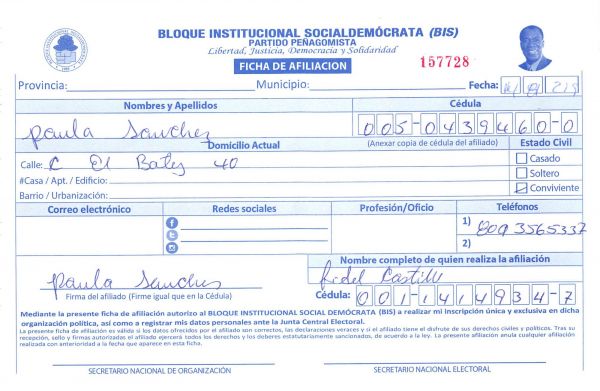 BLOQUE INSTITUCIONAL SOCIALDEMÓCRATA (BIS)
PARTIDO PEÑAGOMISTA
Libertad, Justicia, Democracia y Solidaridad
FICHA DE AFILIACION
157728
Provincia:
Municipio:
Fecha:
Nombres y Apellidos
Cédula
Paula Sanchez
005-0439460-0
Domicilio Actual
(Anexar copia de cédula del afiliado)
Estado Civil
Calle: C El Batey 40
Casado
#Casa / Apt. / Edificio:
Soltero
Barrio / Urbanización:
Conviviente
Correo electrónico
Redes sociales
Profesión/Oficio
Teléfonos
1) 809 3565337
2)
Nombre completo de quien realiza la afiliación
Paula Sanches
Fidel Castillo
Firma del afiliado (Firme igual que en la Cédula)
Cédula: 001-1414934-7
Mediante la presente ficha de afiliación autorizo al BLOQUE INSTITUCIONAL SOCIAL DEMÓCRATA (BIS) a realizar mi inscripción única y exclusiva en dicha
organización política, así como a registrar mis datos personales ante la Junta Central Electoral.
La presente ficha de afiliación es válida si los datos ofrecidos por el afiliado son correctos, las declaraciones veraces y si el afiliado tiene el disfrute de sus derechos civiles y políticos. Tras su
recepción, sello y firmas autorizadas el afiliado ejercerá todos los derechos y los deberes estatutariamente sancionados, de acuerdo a la ley. La presente afiliación anula cualquier afiliación
realizada con anterioridad a la fecha que aparece en esta ficha.
SECRETARIO NACIONAL DE ORGANIZACIÓN
SECRETARIO NACIONAL ELECTORAL